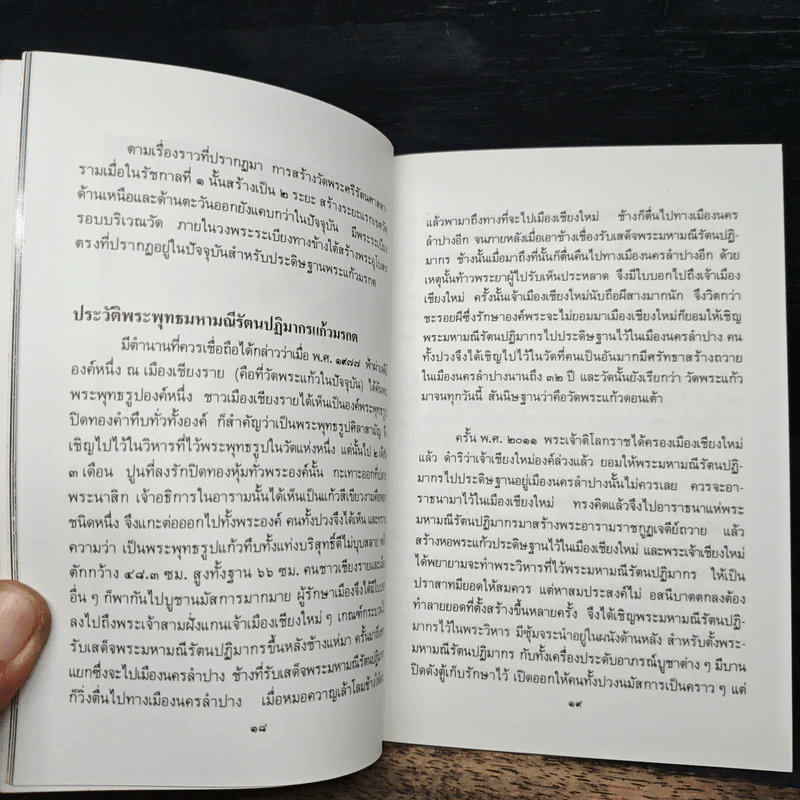 ตามเรื่องราวที่ปรากฏมา การสร้างวัดพระศรีรัตนศาสดา
รามเมื่อในรัชกาลที่ ๑ นั้นสร้างเป็น ๒ ระยะ สร้างระยะแรกเขตวัด
ด้านเหนือและด้านตะวันออกยังแคบกว่าในปัจจุบัน มีพระระเบียง
รอบบริเวณวัด ภายในวงพระระเบียงทางข้างใต้สร้างพระอุโบสถ
ตรงที่ปรากฏอยู่ในปัจจุบันสำหรับประดิษฐานพระแก้วมรกต
ประวัติพระพุทธมหามณีรัตนปฏิมากรแก้วมรกต
มีตำนานที่ควรเชื่อถือได้กล่าวว่าเมื่อ พ.ศ. ๑๙๗๗ ฟ้าผ่า
องค์หนึ่ง ณ เมืองเชียงราย (คือที่วัดพระแก้วในปัจจุบัน) ได้
พระพุทธรูปองค์หนึ่ง ชาวเมืองเชียงรายได้เห็นเป็นองค์พระพุทธรูป
ปิดทองคำทึบทั่วทั้งองค์ ก็สำคัญว่าเป็นพระพุทธรูปศิลาสามัญ
เชิญไปไว้ในวิหารที่ไว้พระพุทธรูปในวัดแห่งหนึ่ง แต่นั้นไป ๒
๓ เดือน ปูนที่ลงรักปิดทองหุ้มทั่วพระองค์นั้น กะเทาะออกที่
พระนาสิก เจ้าอธิการในอารามนั้นได้เห็นเป็นแก้วสีเขียวงาม
ชนิดหนึ่ง จึงแกะต่อออกไปทั้งพระองค์ คนทั้งปวงจึงได้เห็น
ความว่า เป็นพระพุทธรูปแก้วทึบทั้งแท่งบริสุทธิ์ดีไม่บุบสลาย
ตักกว้าง ๔๘.๓ ซม. สูงทั้งฐาน ๖๖ ซม. คนชาวเชียงราย
อื่น ๆ ก็พากันไปบูชานมัสการมากมาย ผู้รักษาเมืองจึงได้มี
ลงไปถึงพระเจ้าสามฝั่งแกนเจ้าเมืองเชียงใหม่ ๆ เกณฑ์
รับเสด็จพระมหามณีรัตนปฏิมากรขึ้นหลังช้างแห่มา ครั้นมาถึง
แยกซึ่งจะไปเมืองนครลำปาง ช้างที่รับเสด็จพระมหามณีรัตนปฏิมากร
ก็วิ่งตื่นไปทางเมืองนครลำปาง เมื่อหมอควาญเล้าโลมช้าง
๑๘
แล้วพามาถึงทางที่จะไปเมืองเชียงใหม่ ช้างก็ตื่นไปทางเมืองนคร
ลำปางอีก จนภายหลังเมื่อเอาช้างเชื่องรับเสด็จพระมหามณีรัตนปฏิ-
มากร ช้างนั้นเมื่อมาถึงที่นั้นก็ตื่นคืนไปทางเมืองนครลำปางอีก ด้วย
เหตุนั้นท้าวพระยาผู้ไปรับเห็นประหลาด จึงมีใบบอกไปถึงเจ้าเมือง
เชียงใหม่ ครั้งนั้นเจ้าเมืองเชียงใหม่นับถือผีสางมากนัก จึงวิตกว่า
ชะรอยผีซึ่งรักษาองค์พระจะไม่ยอมมาเมืองเชียงใหม่ก็ยอมให้เชิญ
พระมหามณีรัตนปฏิมากรไปประดิษฐานไว้ในเมืองนครลำปาง คน
ทั้งปวงจึงได้เชิญไปไว้ในวัดที่คนเป็นอันมากมีศรัทธาสร้างถวาย
ในเมืองนครลำปางนานถึง ๓๒ ปี และวัดนั้นยังเรียกว่า วัดพระแก้ว
มาจนทุกวันนี้ สันนิษฐานว่าคือวัดพระแก้วดอนเต้า
ครั้น พ.ศ. ๒๐๑๑ พระเจ้าติโลกราชได้ครองเมืองเชียงใหม่
แล้ว ดำริว่าเจ้าเชียงใหม่องค์ล่วงแล้ว ยอมให้พระมหามณีรัตนปฏิ-
มากรไปประดิษฐานอยู่เมืองนครลำปางนั้นไม่ควรเลย ควรจะอา-
ราธนามาไว้ในเมืองเชียงใหม่ ทรงคิดแล้วจึงไปอาราธนาแห่พระ
มหามณีรัตนปฏิมากรมาสร้างพระอารามราชกูฏเจดีย์ถวาย แล้ว
สร้างหอพระแก้วประดิษฐานไว้ในเมืองเชียงใหม่ และพระเจ้าเชียงใหม่
ได้พยายามจะทำพระวิหารที่ไว้พระมหามณีรัตนปฏิมากร ให้เป็น
ปราสาทมียอดให้สมควร แต่หาสมประสงค์ไม่ อสนีบาตตกลงต้อง
ทำลายยอดที่ตั้งสร้างขึ้นหลายครั้ง จึงได้เชิญพระมหามณีรัตนปฏิ-
มากรไว้ในพระวิหาร มีซุ้มจระนำอยู่ในผนังด้านหลัง สำหรับตั้งพระ-
มหามณีรัตนปฏิมากร กับทั้งเครื่องประดับอาภรณ์บูชาต่าง ๆ มีบาน
ปิดดังตู้เก็บรักษาไว้ เปิดออกให้คนทั้งปวงนมัสการเป็นคราว ๆ แต่
๑๙